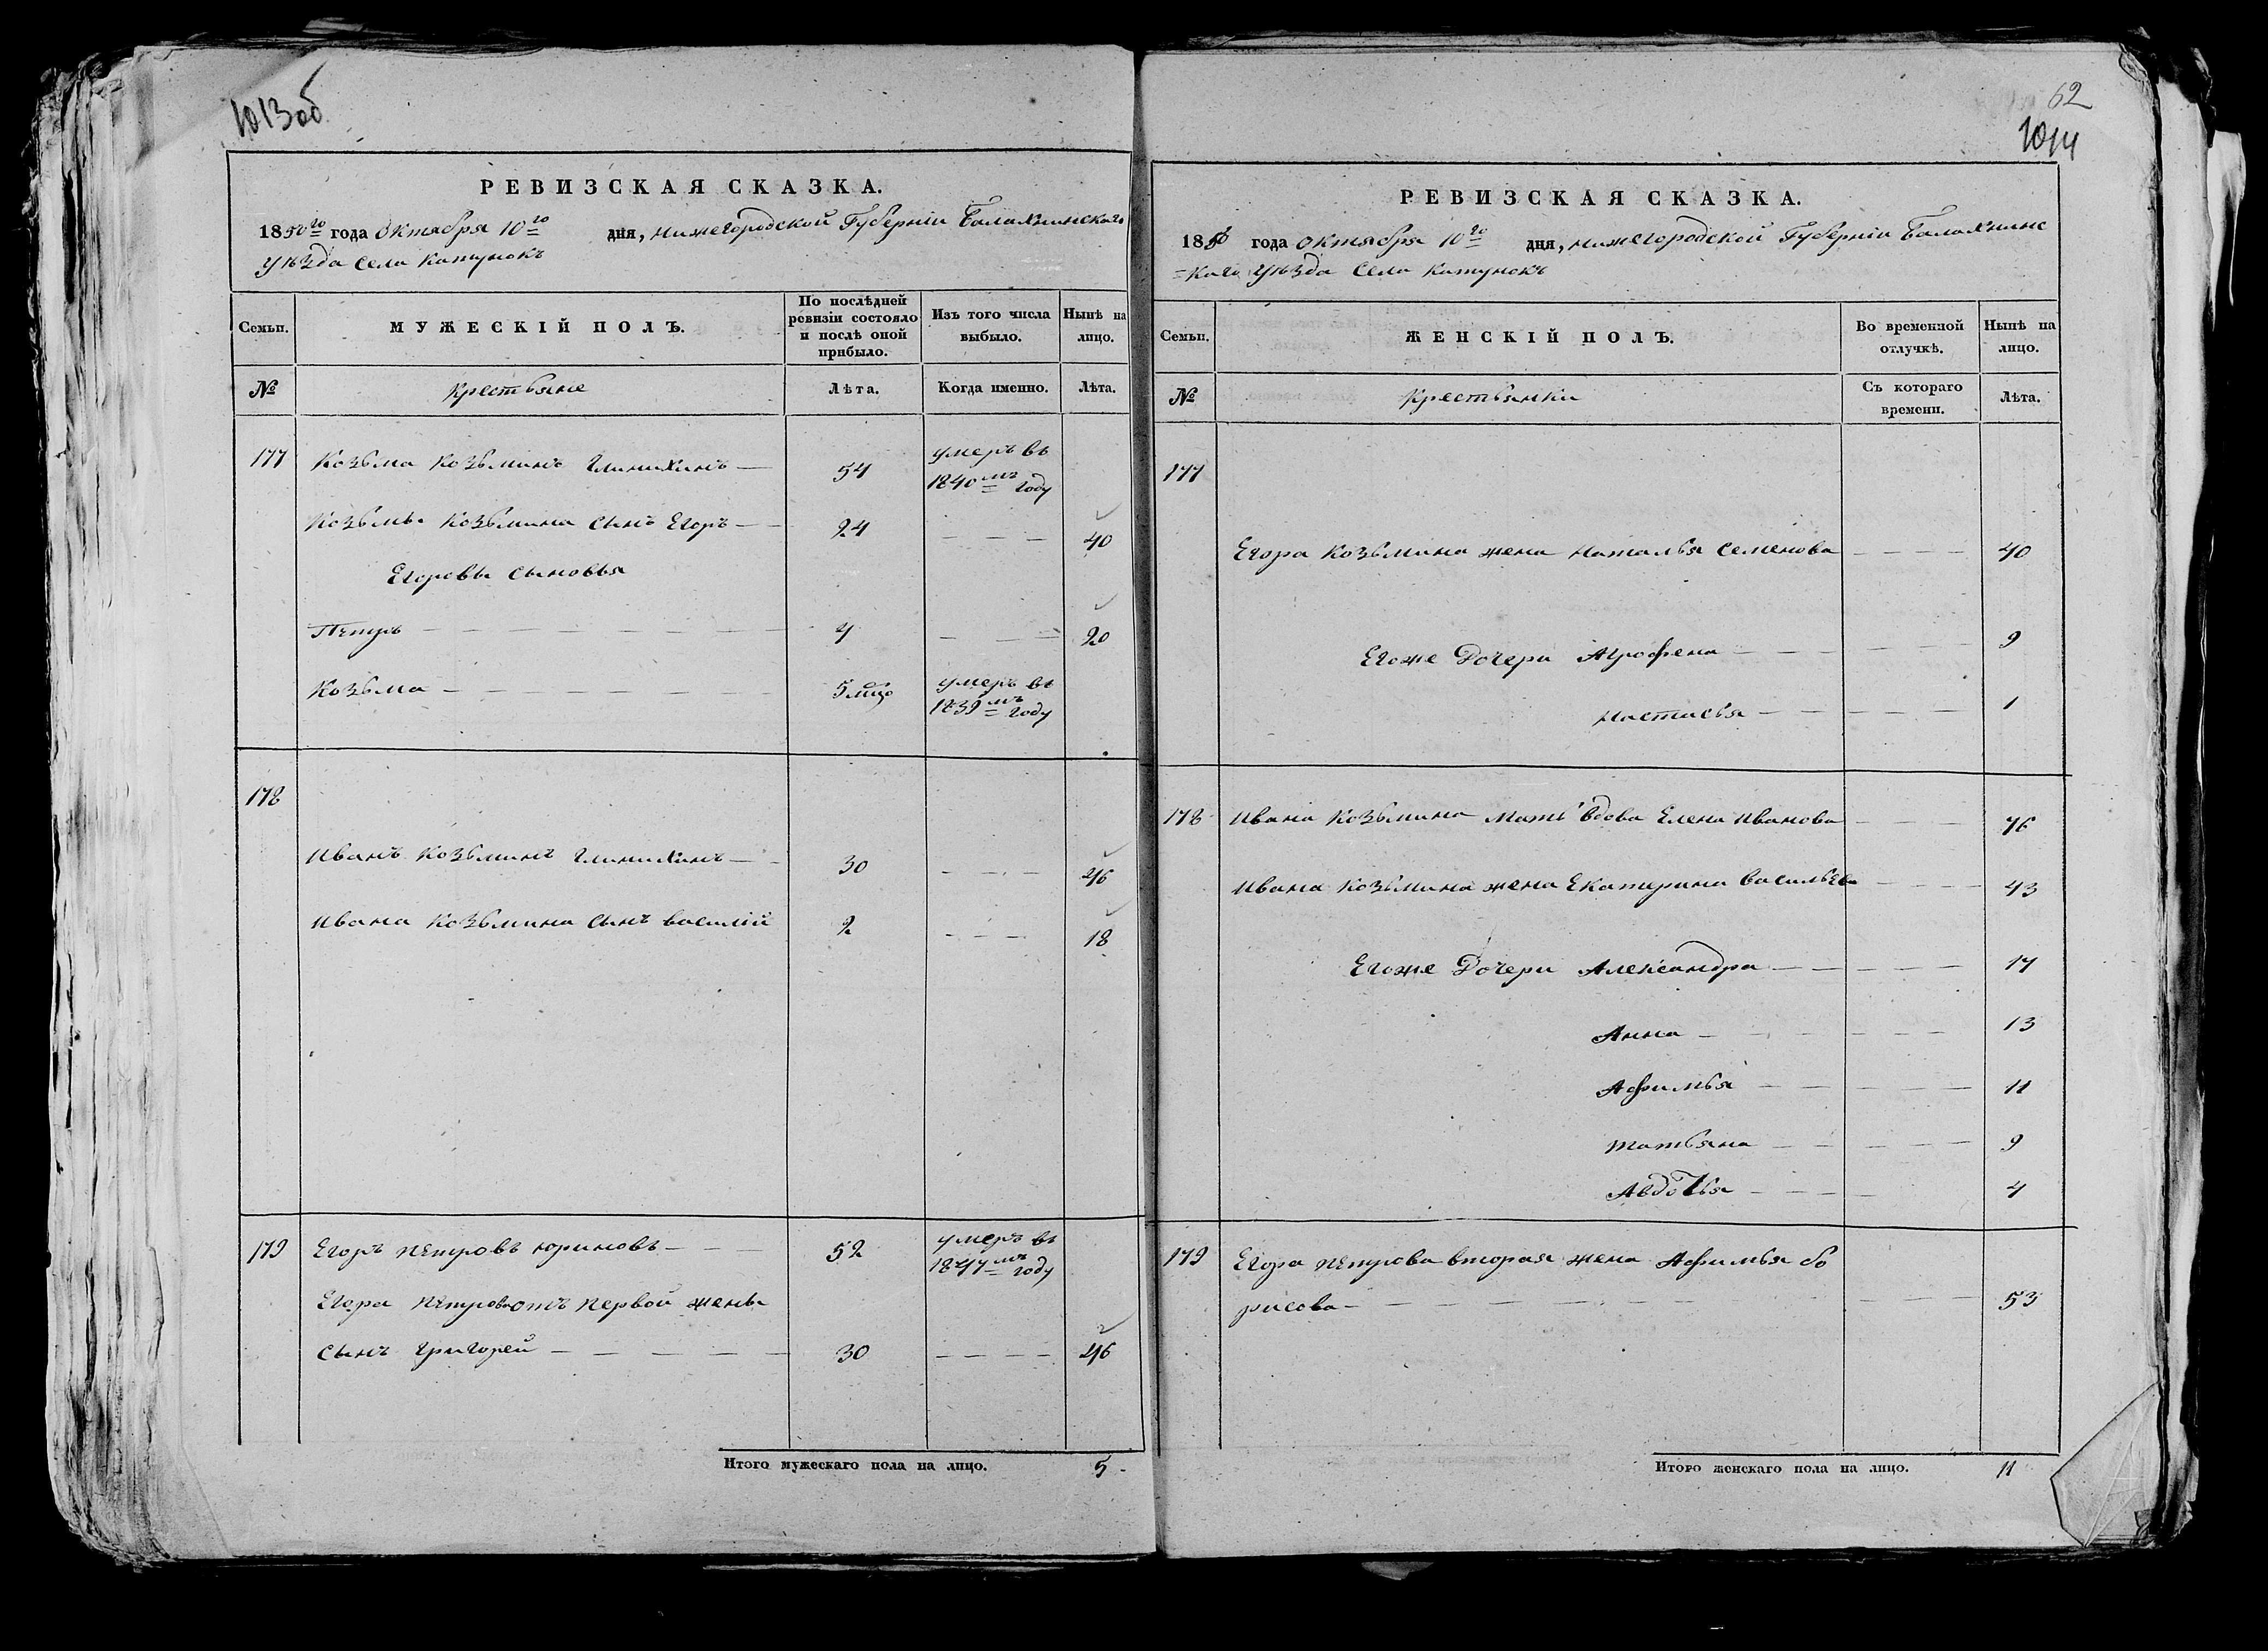 1013об
РЕВИЗСКАЯ СКАЗКА.
1850го года Октября 10го дня, Нижегородской Губерніи Балахнинскаго
Уѣзда Села Катунокъ
Семьи.
МУЖЕСКІЙ ПОЛЪ.
По послѣдней ревизіи состояло и послѣ оной прибыло.
Изъ того числа выбыло.
Нынѣ на лицо.
№
Крестьяне
Лѣта.
Когда именно.
Лѣта.
177 Козьма Козьминъ Глинихинъ — 54 умеръ въ 1840мъ Году
Козьмы Козьмина сынъ Егоръ — 24 — — — 40
Егоровы сыновья
Петръ — 4 — — 20
Козьма — 5 мцо умеръ въ 1839мъ Году
178
Иванъ Козьминъ Глинихинъ — 30 — — — 46
Ивана Козьмина сынъ Василій 2 — — — 18
179 Егоръ Петровъ Юриновъ — 52 умеръ въ 1847мъ Году
Егора Петрова отъ первой жены
сынъ Григорей — 30 — — — — 46
Итого мужескаго пола на лицо. 5
62
1014
РЕВИЗСКАЯ СКАЗКА.
1850 года Октября 10го дня, Нижегородской Губерніи Балахнинс
=каго Уѣзда Села Катунокъ
Семьи.
ЖЕНСКІЙ ПОЛЪ.
Во временной отлучкѣ.
Нынѣ на лицо.
№
Крестьянки
Съ котораго времени.
Лѣта.
177
Егора Козьмина жена Наталья Семенова — — — — 40
Егоже Дочери Агрофена — 9
Настасья — 1
178 Ивана Козьмина мать вдова Елена Иванова — 76
Ивана Козьмина жена Екатерина Васильева — 43
Егоже Дочери Александра — 17
Анна — 13
Афимья — 11
Татьяна — 9
Авдотья — 4
179 Егора Петрова вторая жена Афимья Бо
рисова — 53
Итого женскаго пола на лицо. 11